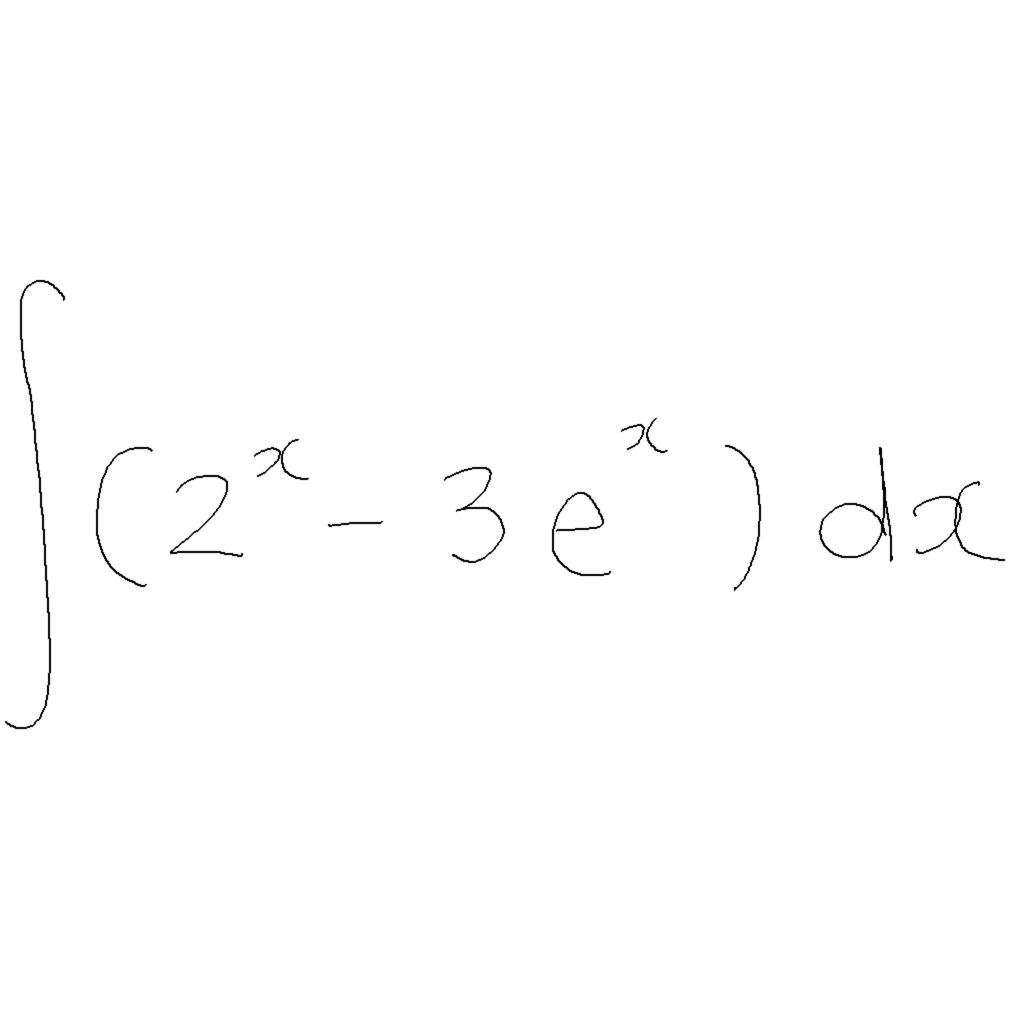 ∫(2^x - 3e^x) dx